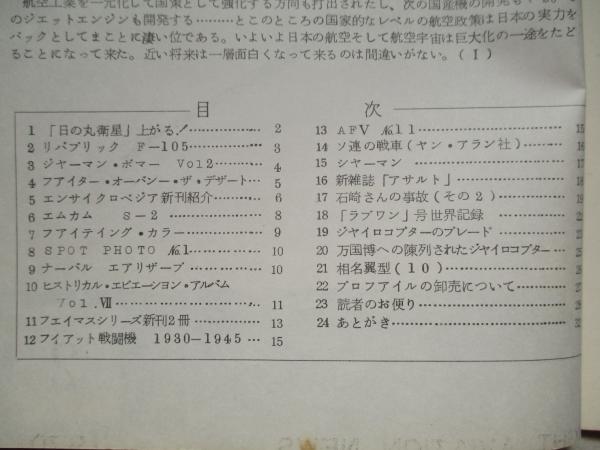 航空工業を一元化して国策として強化する方向も打出されたし、次の国産機の開発も
のジェットエンジンも開発する………とこのところの国家的なレベルの航空政策は日本の実力を
バックとしてまことに凄い位である。いよいよ日本の航空そして航空宇宙は巨大化の一途をたど
ることになって来た。近い将来は一層面白くなって来るのは間違いがない。(I)
目 次
1 「日の丸衛星」上がる!…………… 2
2 リパブリック F-105……………… 3
3 ジャーマン・ボマー Vol2………… 4
4 フアイター・オーバシー・ザ・デザート… 5
5 エンサイクロペジア新刊紹介………… 6
6 エムカム S-2……………… 8
7 フアイテイング・カラー……………… 9
8 SPOT PHOTO №1……………… 10
9 ナーバル エアリザーブ……………… 10
10 ヒストリカル・エビエーション・アルバム
Vol.Ⅶ……………… 11
11 フェイマスシリーズ新刊2冊………… 13
12 フイアット戦闘機 1930-1945… 15
13 AFV №11……………… 15
14 ソ連の戦車(ヤン・アラン社)…… 16
15 シャーマン………………
16 新雑誌「アサルト」………………
17 石崎さんの事故(その2)………
18 「ラブワン」号世界記録………
19 ジャイロコプターのブレード………
20 万国博への陳列されたジャイロコプター…
21 相名翼型(10)………………
22 プロファイルの卸売について………
23 読者のお便り………………
24 あとがき………………